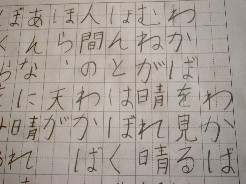 わかば
わかばを見る
むねが晴れ晴
ほんとはぼく
人間のわかば
ほら、天が
あんなに晴れ
ぼく